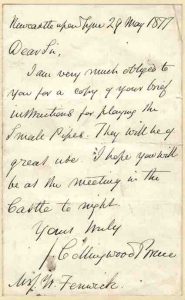 Newcastle upon Tyne 29 May 1877
Dear Sir,
I am very much obliged to
you for a copy of your brief
instructions for playing the
Small Pipes. They will be of
great use. I hope you will
be at the meeting in the
Castle to night
Yours truly
J. Collingwood Bruce
W. Fenwick.